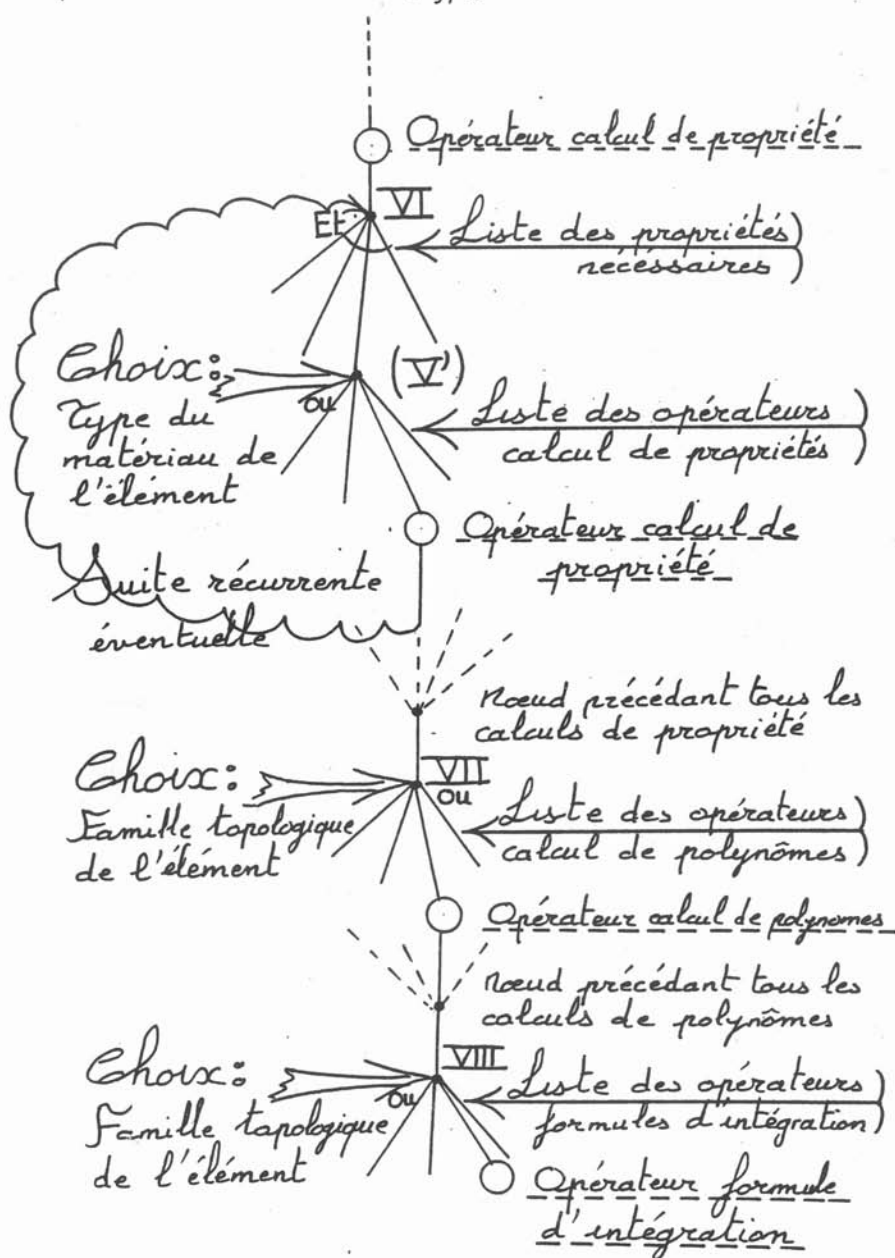 Opérateur calcul de propriété
Et
VI
Liste des propriétés)
nécéssaires)
Choix:
ou
(V')
Type du
matériau de
l'élément
Liste des opérateurs)
calcul de propriétés)
Opérateur calcul de
propriété
Suite récurrente
éventuelle
Nœud précédant tous les
calculs de propriété
Choix:
VII
ou
Famille topologique
de l'élément
Liste des opérateurs)
calcul de polynômes)
Opérateur calcul de polynomes
Nœud précédant tous les
calculs de polynômes
Choix:
VIII
ou
Famille topologique
de l'élément
Liste des opérateurs)
formules d'intégration)
Opérateur formule
d'intégration